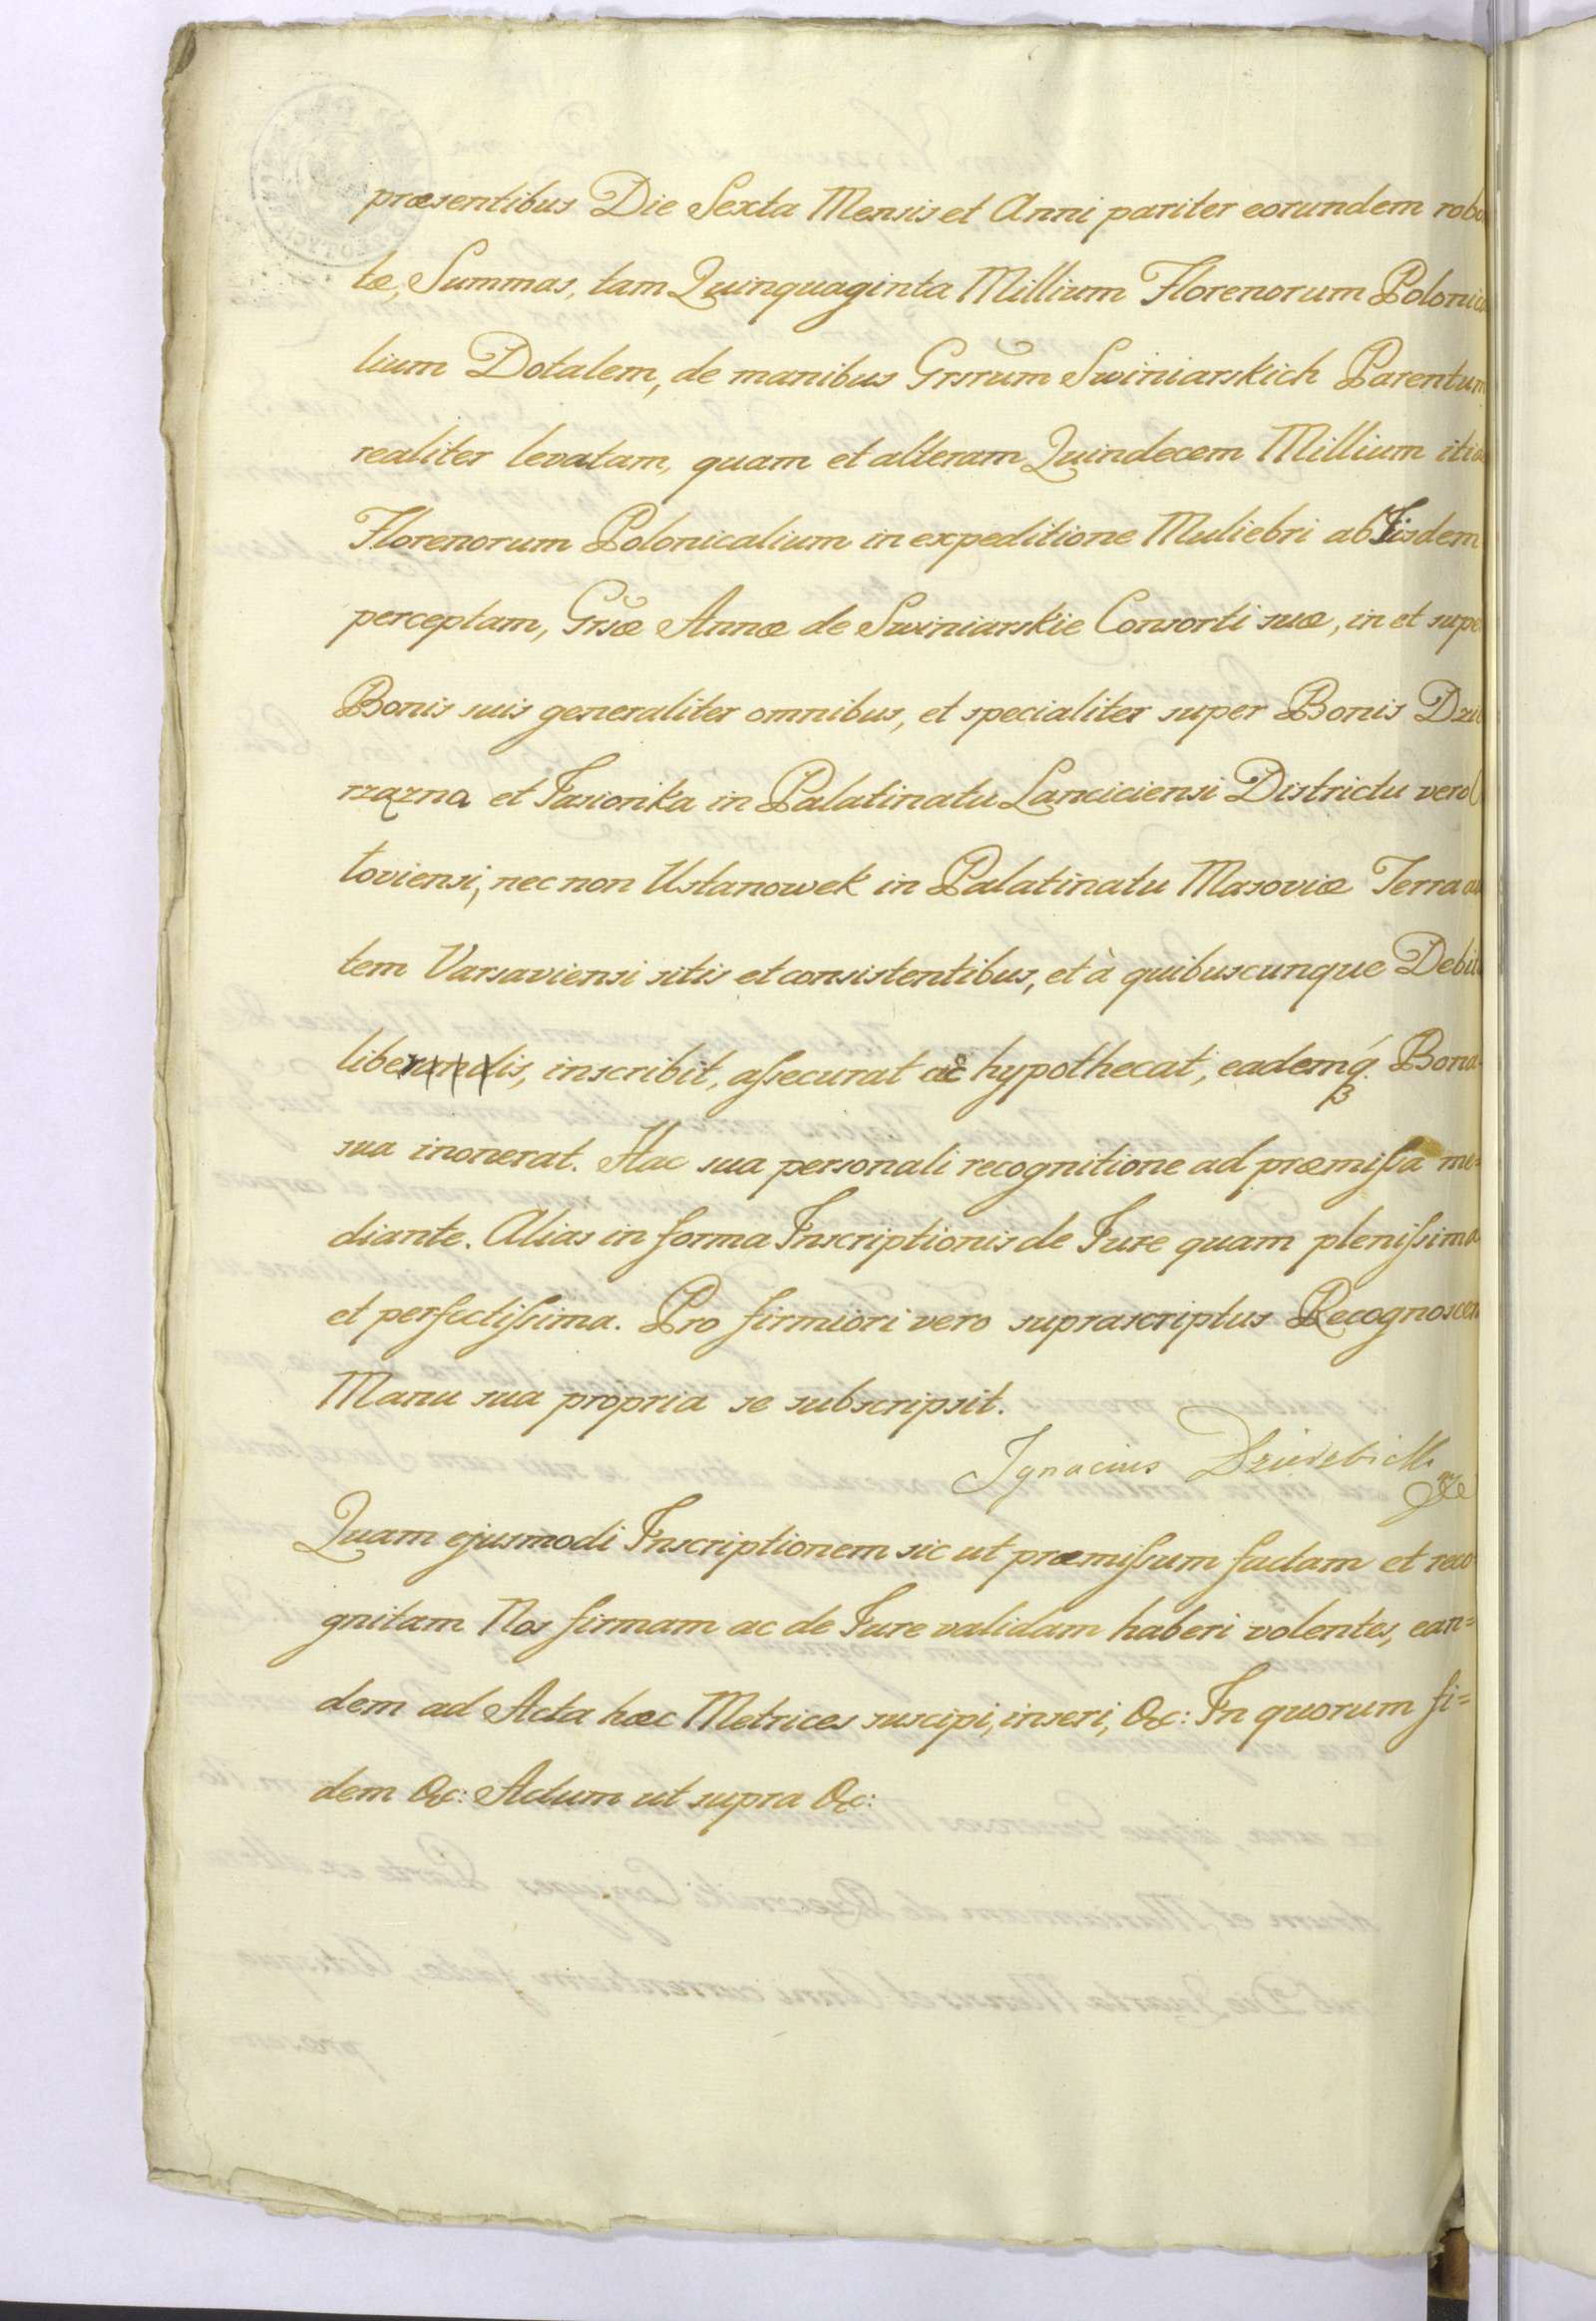 præsentibus Die Sexta Mensis et Anni pariter eorundem robo
tæ, Summas, tam Quinquaginta Millium Florenorum Polonica
lium Dotalem, de manibus Grsrum Swiniarskich Parentum
realiter levatam, quam et alteram Quindecem Millium itid
Florenorum Polonicalium in expeditione Muliebri ab Iisdem
perceptam, Grsæ Annæ de Swiniarskie Consorti suæ, in et supe
Bonis suis generaliter omnibus, et specialiter super Bonis Dzie
rzązna et Jasionka in Palatinatu Lanciciensi Districtu vero
toviensi, nec non Ustanowek in Palatinatu Masoviæ Terra au
tem Varsaviensi sitis et consistentibus, et à quibuscunque Debit
liberandis, inscribit, aſsecurat ac hypothecat, eademq́ Bona
sua inonerat. Hac sua personali recognitione ad præmiſsa me=
diante. Alias in forma Inscriptionis de Jure quam pleniſsima
et perfectiſsima. Pro firmiori vero suprascriptus Recognoscen
Manu sua propria se subscripsit.
Ignacius
Quam ejusmodi Inscriptionem sic ut præmiſsum factam et reco
gnitam Nos firmam ac de Jure validam haberi volentes, ean=
dem ad Acta hæc Metrices suscipi, inseri, &c: In quorum fi=
dem &c: Actum ut supra &c: